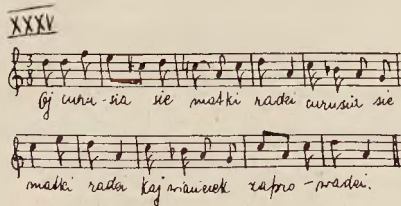 XXXV
3 8
Oj curu-sia sie matki radzi curusia sie
matki radzi kaj wianecek zapro-wadzi.